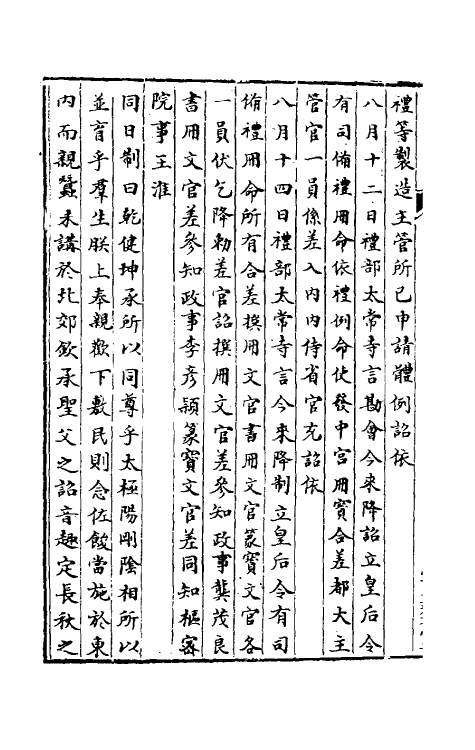 禮等製造主管所已申請體例詔依
八月十二日禮部太常寺言勘會今來降詔立皇后令
有司備禮冊命依禮例命使發中宮冊寶合差都大主
管官一員係差入內內侍省官充詔依
八月十四日禮部太常寺言今來降制立皇后令有司
備禮冊命所有合差撰冊文官書冊文官篆寶文官各
一員伏乞降勅差官詔撰冊文官差參知政事龔茂良
書冊文官差參知政事李彥穎篆寶文官差同知樞密
院事王淮
同日制曰乾健坤承所以同尊乎太極陽剛陰相所以
並育乎羣生朕上奉親歡下敷民則念佐餕當施於東
內而親蠶未講於北郊欽承聖父之詔音趣定長秋之